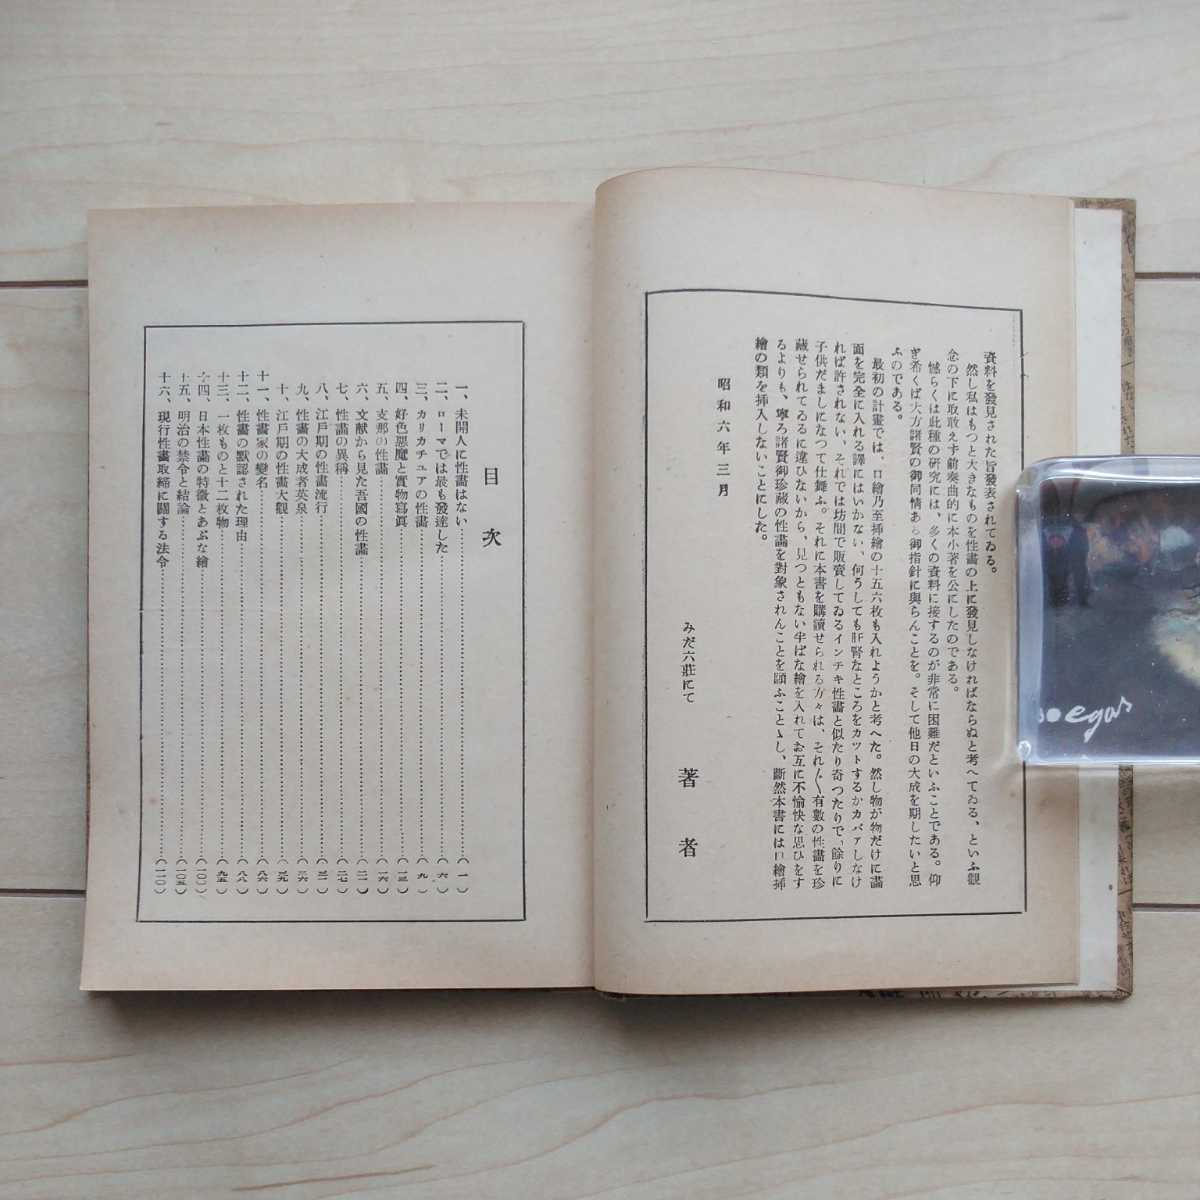 資料を發見された旨發表されてゐる。
然し私はもつと大きなものを性畫の上に發見しなければならぬと考へてゐる、といふ觀
念の下に取敢えず前奏曲的に本小著を公にしたのである。
憾らくは此種の研究には、多くの資料に接するのが非常に困難だといふことである。仰
ぎ希くば大方諸賢の御同情ある御指針に與らんことを。そして他日の大成を期したいと思
ふのである。
最初の計畫では、口繪乃至挿繪の十五六枚も入れようかと考へた。然し物が物だけに畫
面を完全に入れる譯にはいかない、何うしても肝腎なところをカツトするかカバアしなけ
れば許されない、それでは坊間で販賣してゐるインチキ性畫と似たり寄つたりで、餘りに
子供だましになつて仕舞ふ。それに本書を購讀せられる方々は、それ〴〵有數の性畫を珍
藏せられてゐるに違ひないから、見つともない半ばな繪を入れてお互に不愉快な思ひをす
るよりも、寧ろ諸賢御珍藏の性畫を對象されんことを願ふことゝし、斷然本書には口繪挿
繪の類を挿入しないことにした。
昭和六年三月
みだ六莊にて
著者
目次
一、未開人に性畫はない……(一)
二、ローマでは最も發達した……(六)
三、カリカチュアの性畫……(九)
四、好色惡魔と實物寫眞……(一三)
五、支那の性畫……(一六)
六、文献から見た吾國の性畫……(二一)
七、性畫の異稱……(二七)
八、江戸期の性畫流行……(三一)
九、性畫の大成者英泉……(三六)
十、江戸期の性畫大觀……(三九)
十一、性畫家の變名……(八六)
十二、性畫の默認された理由……(八八)
十三、一枚ものと十二枚物……(九五)
十四、日本性畫の特徴とあぶな繪……(一〇一)
十五、明治の禁令と結論……(一〇五)
十六、現行性畫取締に關する法令……(一一〇)
egas